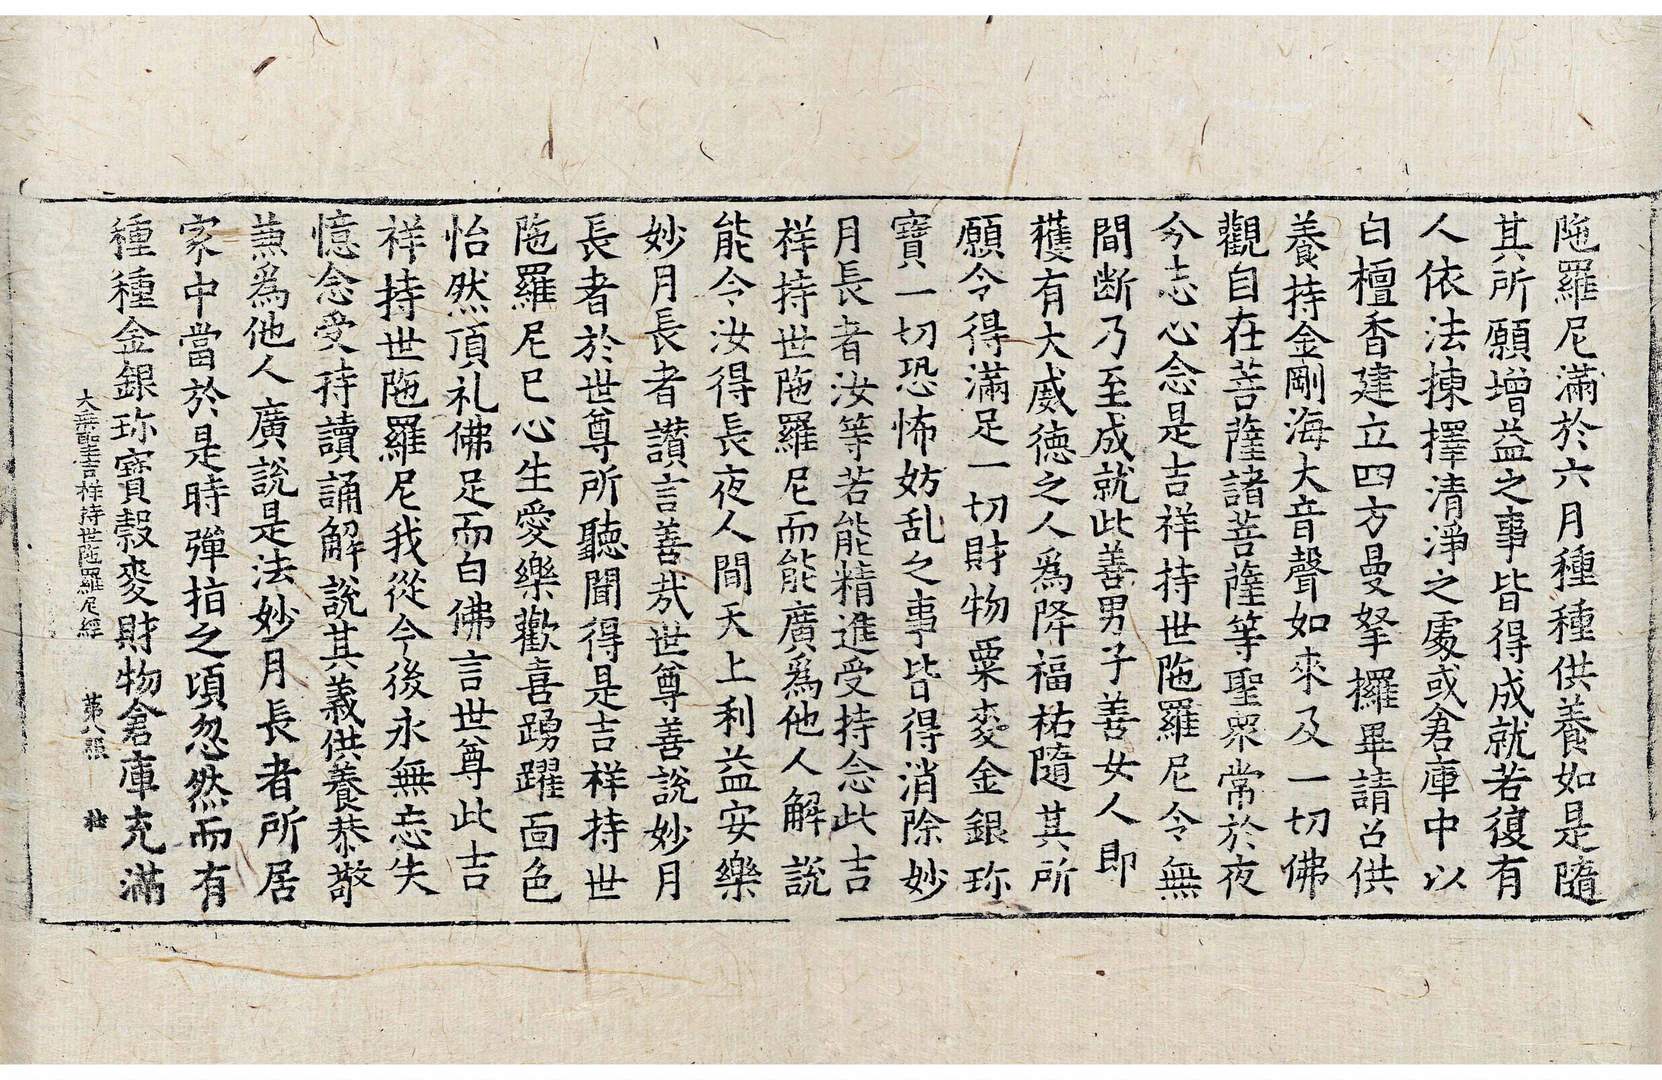 陁羅尼滿於六月種種供養如是隨
其所願增益之事皆得成就若復有
人依法揀擇清淨之處或倉庫中以
白檀香建立四方曼拏攞畢請召供
養持金剛海大音聲如來及一切佛
觀自在菩薩諸菩薩等聖衆常於夜
今志心念是吉祥持世陁羅尼令無
間断乃至成就此善男子善女人即
獲有大威德之人爲降福祐隨其所
願令得滿足一切財物粟麥金銀珎
寶一切恐怖妨乱之事皆得消除妙
月長者汝等若能精進受持念此吉
祥持世陁羅尼而能廣爲他人解說
能令汝得長夜人間天上利益安樂
妙月長者讃言善㢤世尊善說妙月
長者於世尊所聽聞得是吉祥持世
陁羅尼已心生愛樂歡喜踴躍面色
怡然頂礼佛足而白佛言世尊此吉
祥持世陁羅尼我從今後永無忘失
憶念受持讀誦解說其義供養恭敬
兼爲他人廣說是法妙月長者所居
家中當於是時彈指之頃忽然而有
種種金銀珎寶穀麥財物倉庫充滿
大乘聖吉祥持世陁羅尼經 第八張